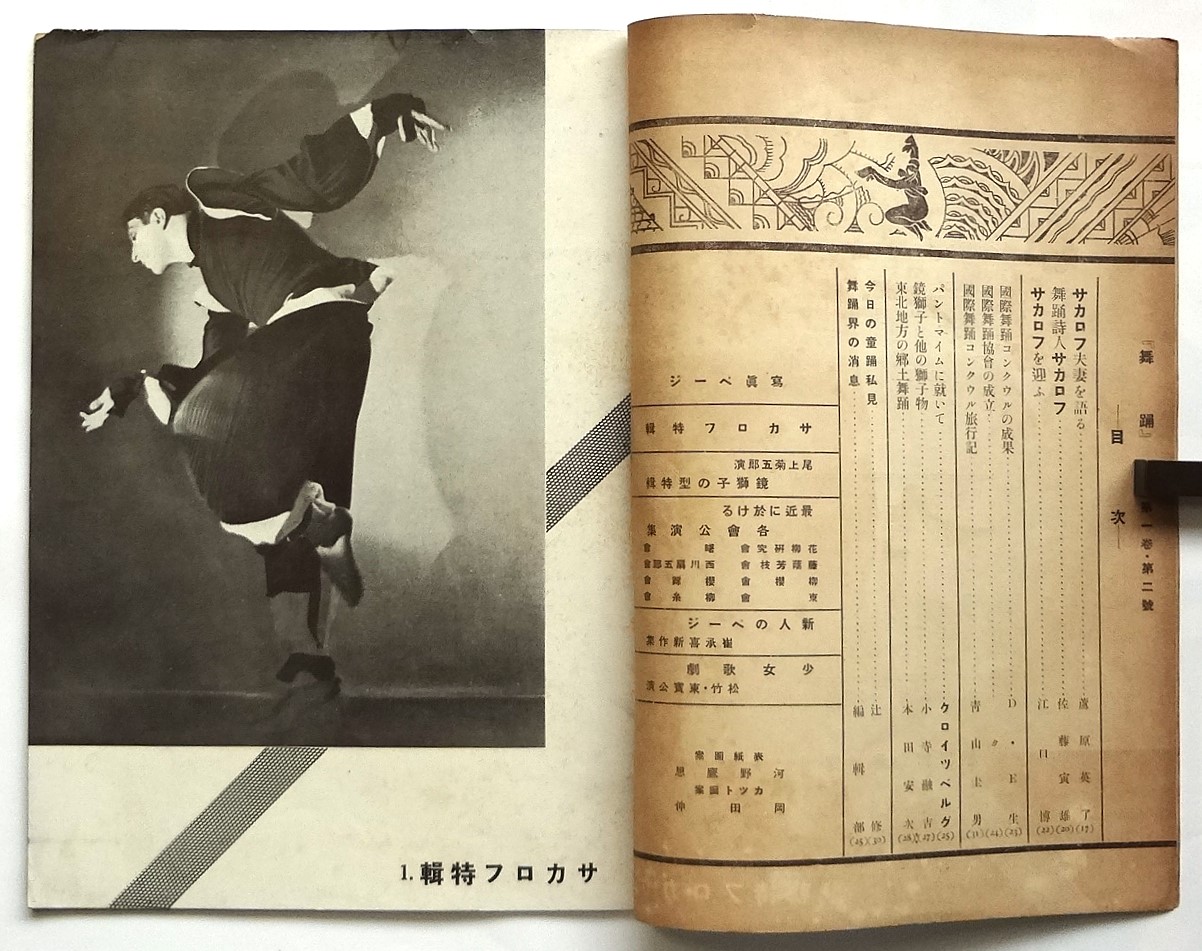 『舞踊』
第一卷・第二號
―目次―
サカロフ夫妻を語る……蘆原英了(17)
舞踊詩人サカロフ……佐藤寅雄(20)
サカロフを迎ふ……江口博(22)
國際舞踊コンクウルの成果……D・E生(23)
國際舞踊協會の成立……〃(24)
國際舞踊コンクウル旅行記……青山圭男(31)
パントマイムに就いて……クロイツベルグ(25)
鏡獅子と他の獅子物……小寺融吉(27)
東北地方の郷土舞踊……本田安次(28)
今日の童踊私見……辻修(30)
舞踊界の消息……編輯部
寫眞ページ
サカロフ特輯
尾上菊五郎演
鏡獅子の型特輯
最近に於ける
各會公演集
花柳研究會 曙會
藤蔭芳枝會 西川扇五郎會
柳櫻會 櫻踊會
東會 柳糸會
新人のページ
崔承喜新作集
少女歌劇
松竹・東寶公演
表紙圖案
河野鷹思
カツト圖案
岡田仲
サカロフ特輯 1.